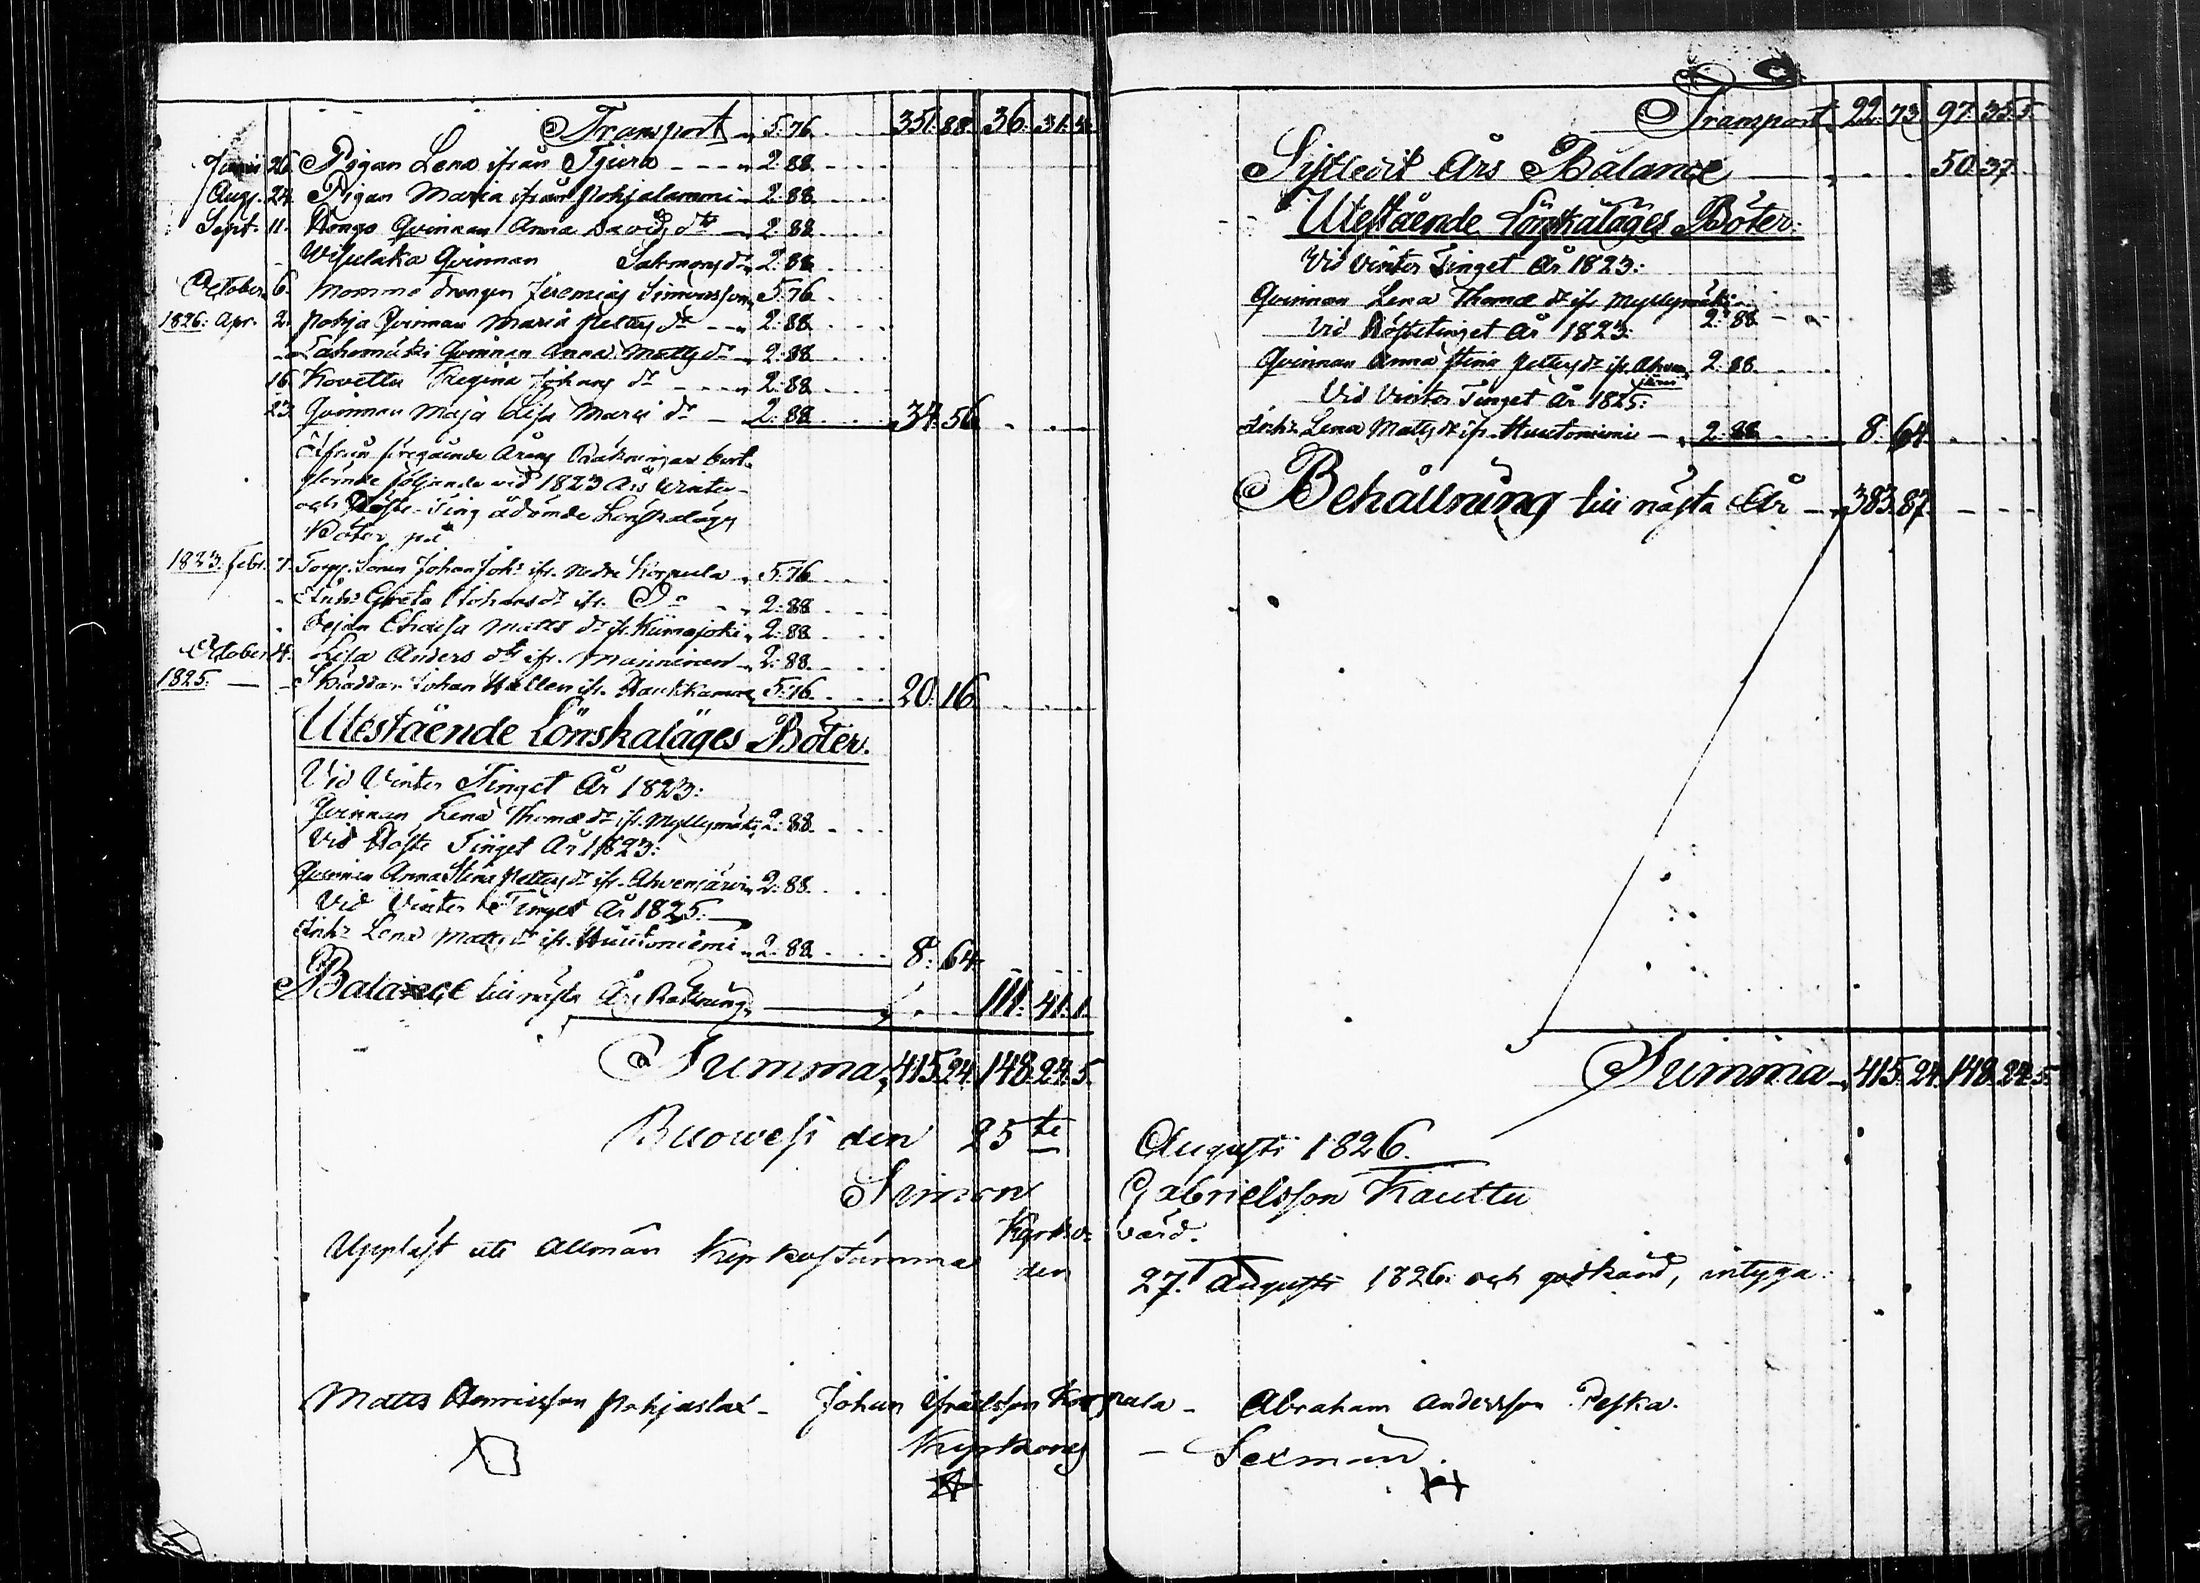 Transport 5:76. 351.88. 36. 31.4.
Junii 26. Pigan Lena ifrån Tjura 2:88.
Aug. 24. Pigan Maria ifrån Pohjalammi 2:88.
Sept. 11. Kongo Qvinnan Anna Davids dtr 2:88.
Wisulaka Qvinnan Salomons dr 2:88.
October 6. Momme drengen Jeremias Simonsson 5:76.
1826: Apr. 2. Pohja Qvinnan Maria Petters dr 2:88.
Lahomäki Qvinnan Anna Matts dr 2:88.
16. Kovettu Regina Johans dr 2:88.
23. Qvinnan Maja Lisa Marci dr 2:88. 34:56.
Ifrån föregående Årens Räkningar bort-
glömde följande vid 1823 Års Winter-
och Höste-Ting ådömde Lönskaläges
Böter på
1823. Febr. 7. Torp. Sonen Johan Johs ifr. Nedre Korpula 5:76.
Inhs Greta Johans dr ifr. Do 2:88.
Pejan Chaisa Matts dr ifr. Kiimajoki 2:88.
October 4. Lisa Anders dtr ifr. Manninen 2:88.
1825. Skräddar Johan Hällen ifr. Haukkamaa 5:76. 20:16.
Utestående Lönskaläges Böter.
Vid Vinter Tinget År 1823:
Qvinnan Lena Thomæ dr ifr. Myllymäki 2:88.
Vid Höste Tinget År 1823:
Qvinnan Anna Stina Petters dr ifr. Ahvenjärvi 2:88.
Vid Vinter Tinget År 1825.
Inhs Lena Matts dr ifr. Huutoniemi 2:88. 8:64.
Balance till nästa Års Räkning 111: 41.1.
Summa, 415.24. 148.24.5.
Ruowesi den 25te
Simon
Kyrko-
Uppläst uti Allmän Kyrkostämma den
Matts Henricsson Pohjaslax - Johan Israelsson Korpula -
Kyrkones
Transport 22.73. 97.35.5.
Sistledit Års Balance 50.37.
Utestående Lönskaläges Böter.
Vid Vinter Tinget År 1823:
Qvinnan Lena Thomæ dr ifr. Myllymäki
2:88.
Vid Höstetinget År 1823:
Qvinnan Anna Stina Petters dr ifr. Ahven- 2:88.
järvi
Vid Vinter Tinget År 1825:
Inhs Lena Matts dr ifr. Huutoniemi 2:88. 8:64.
Behållning till nästa År 383.87.
Summa 415.24. 148.24.5.
Augusti 1826.
Gabrielsson Kauttu
värd.
27. Augusti 1826. och godkänd, intyga:
Abraham Andersson Peska.
Sexmän.